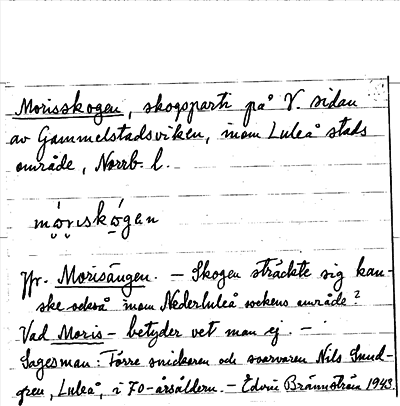 Morisskogen, skogsparti på V. sidan
av Gammelstadsviken, inom Luleå stads
område, Norrb. l.
móriskó̱gan
Jfr. Morisängen. – Skogen sträckte sig kan-
ske också inom Nederluleå sockens område?
Vad Moris– betyder vet man ej. –
Sagesman: Förre snickaren och svarvaren Nils Sund-
gren, Luleå, i 70-årsåldern. – Edvin Brännström 1943.